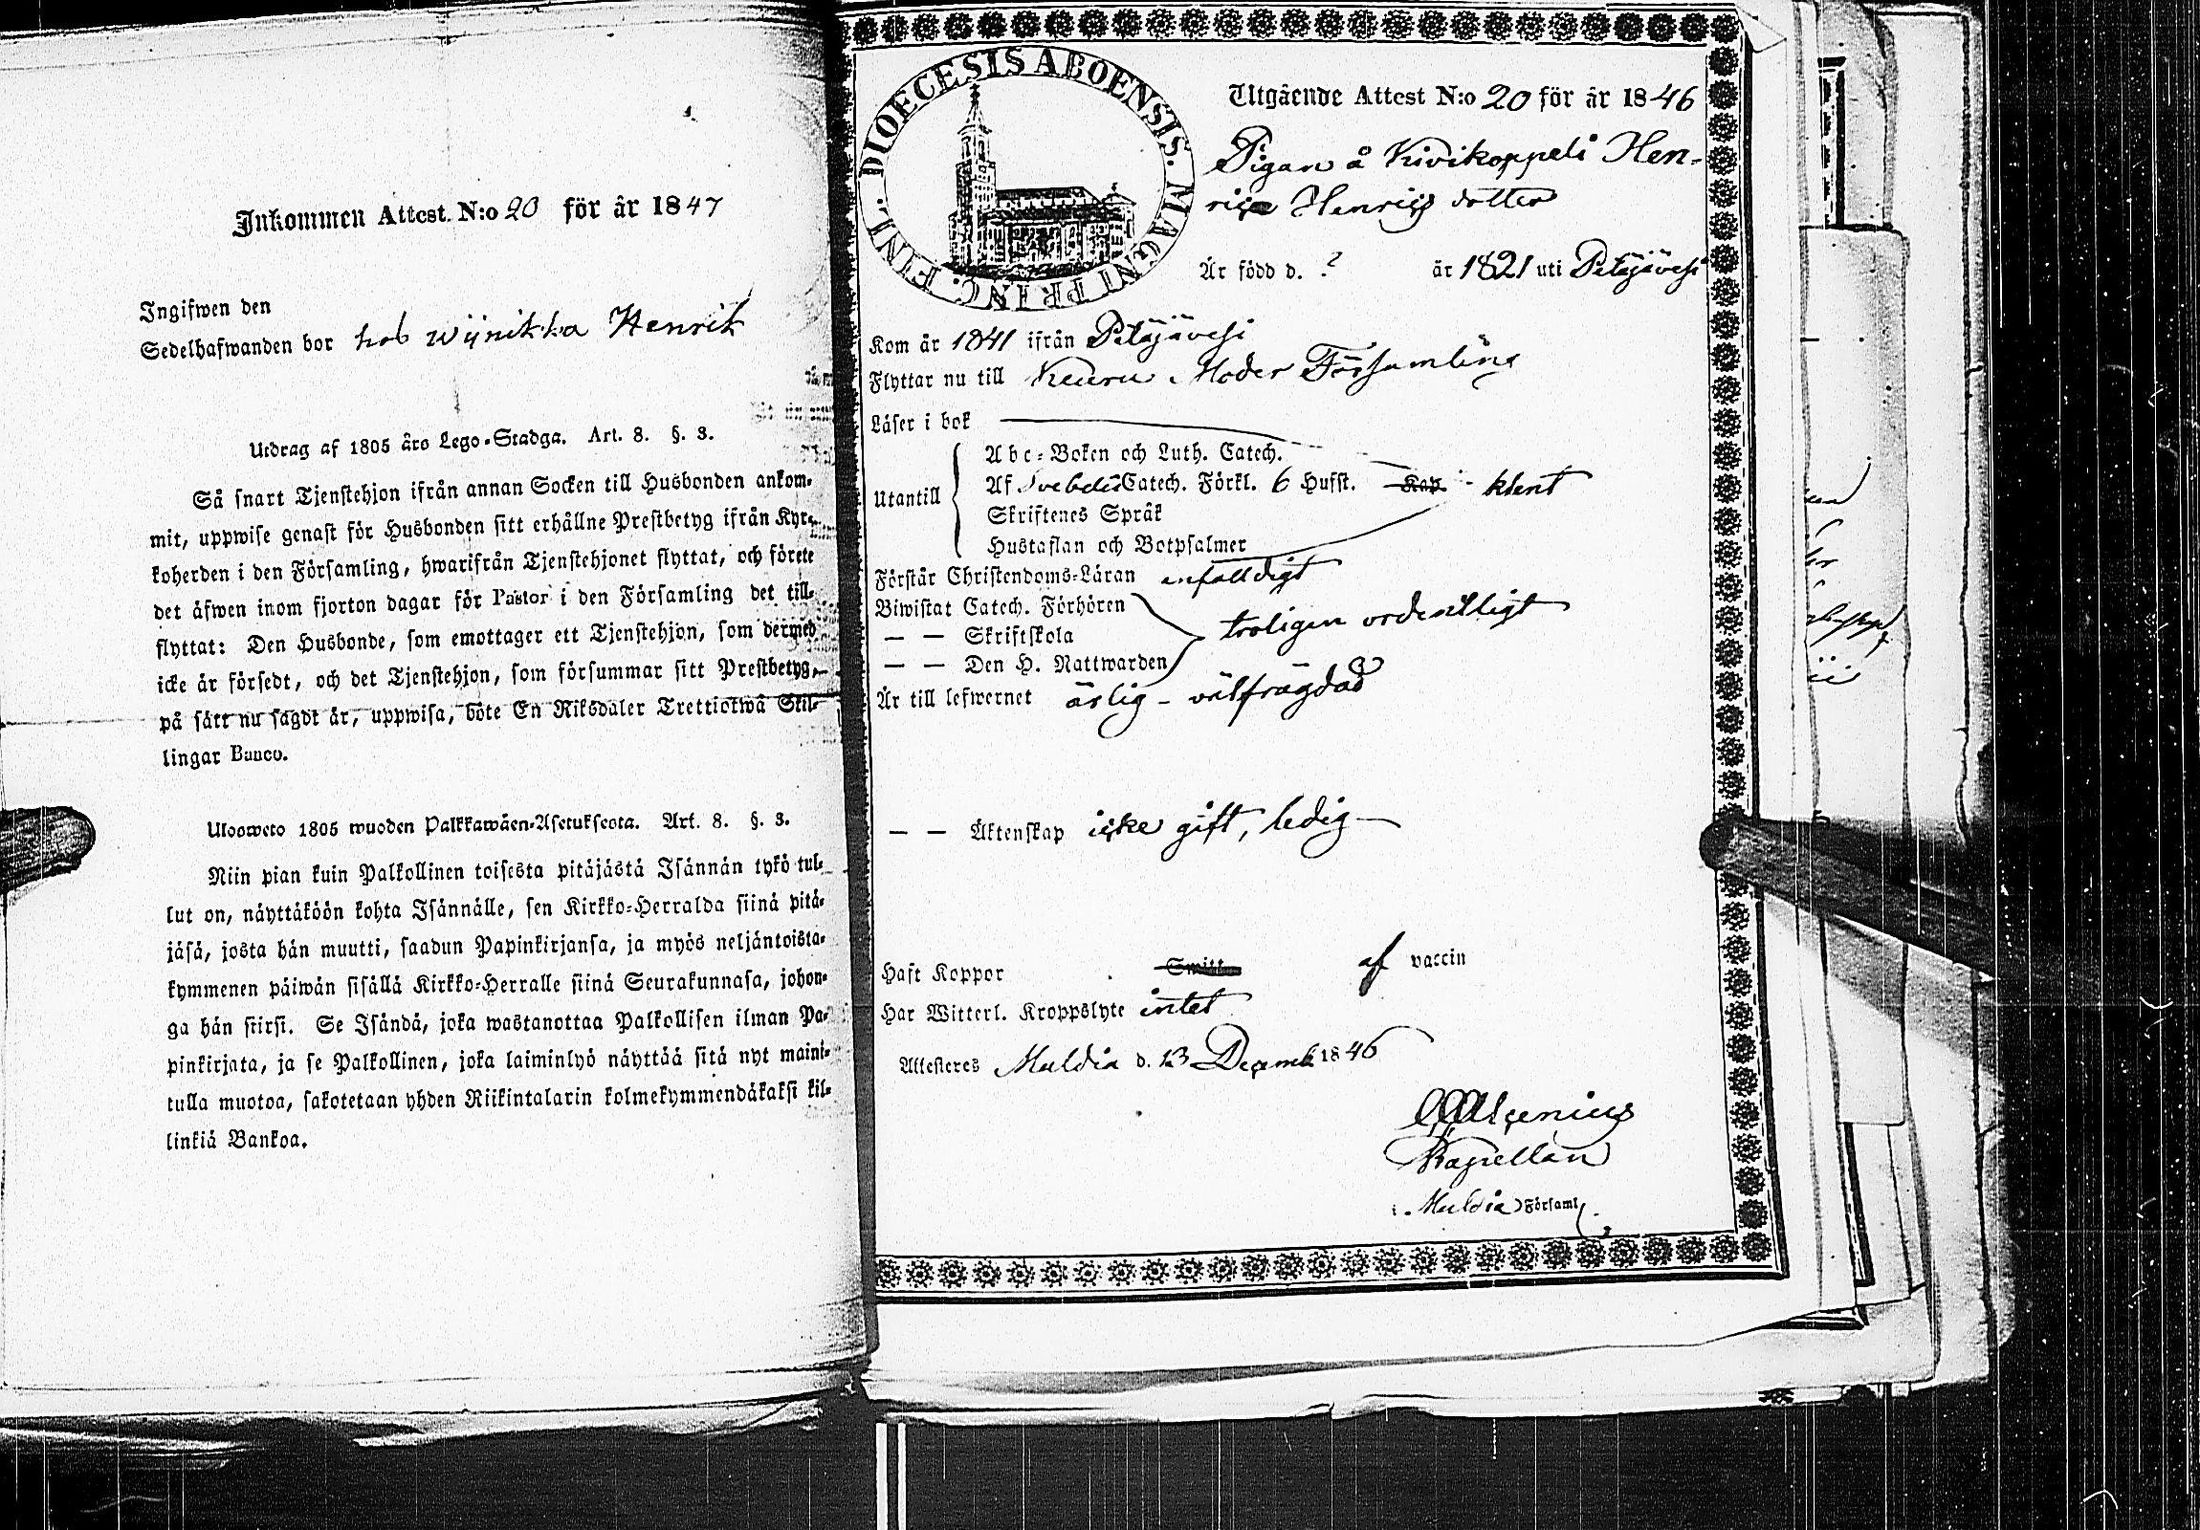 Inkommen Attest. N:o 20 för år 1847
Ingifwen den
Sedelhafwanden bor hos Wijnikka Henrik
Utdrag af 1805 års Lego-Stadga. Art. 8. §. 3.
Så snart Tjenstehjon ifrån annan Socken till Husbonden ankom-
mit, uppwise genast för Husbonden sitt erhållne Prestbetyg ifrån Kyr-
koherden i den Församling, hwarifrån Tjenstehjonet flyttat, och förete
det äfwen inom fjorton dagar för Pastor i den Församling det till-
flyttat: Den Husbonde, som emottager ett Tjenstehjon, som dermed
icke är försedt, och det Tjenstehjon, som försummar sitt Prestbetyg,
på sätt nu sagdt är, uppwisa, böte En Riksdaler Trettiotwå Skil-
lingar Banco.
Ulosweto 1805 wuoden Palkkawäen-Asetuksesta. Art. 8. §. 3.
Niin pian kuin Palkollinen toisesta pitäjästä Isännän tykö tul-
lut on, näyttäköön kohta Isännälle, sen Kirkko-Herralda siinä pitä-
jäsä, josta hän muutti, saadun Papinkirjansa, ja myös neljäntoista-
kymmenen päiwän sisällä Kirkko-Herralle siinä Seurakunnasa, johon-
ga hän siirsi. Se Isändä, joka wastanottaa Palkollisen ilman Pa-
pinkirjata, ja se Palkollinen, joka laiminlyö näyttää sitä nyt maini-
tulla muotoa, sakotetaan yhden Riikintalarin kolmekymmendäkaksi kil-
linkiä Bankoa.
DIOECESIS ABOENSIS. MAGNI PRINC. FINL.
Utgående Attest N:o 20 för år 1846
Pigan å Kivikoppeli Hen-
rica Henrics dotter
Är född d. ? år 1821 uti Petäjävesi
Kom år 1841 ifrån Petäjävesi
Flyttar nu till Keuru Moder Församling
Läser i bok
Utantill
Abc-Boken och Luth. Catech.
Af Svebelii Catech. Förkl. 6 Hufst. Kap. klent
Skriftenes Språk
Hustaflan och Botpsalmer
Förstår Christendoms-Läran enfalldigt
Biwistat Catech. Förhören
— — Skriftskola troligen ordentligt
— — Den H. Nattwarden
Är till lefwernet ärlig - välfrägdad
— — Äktenskap icke gift, ledig —
Haft Koppor af vaccin
Har Witterl. Kroppslyte intet
Attesteres Muldia d. 13 Decemb. 1846
Kapellan
i Muldia Församl.